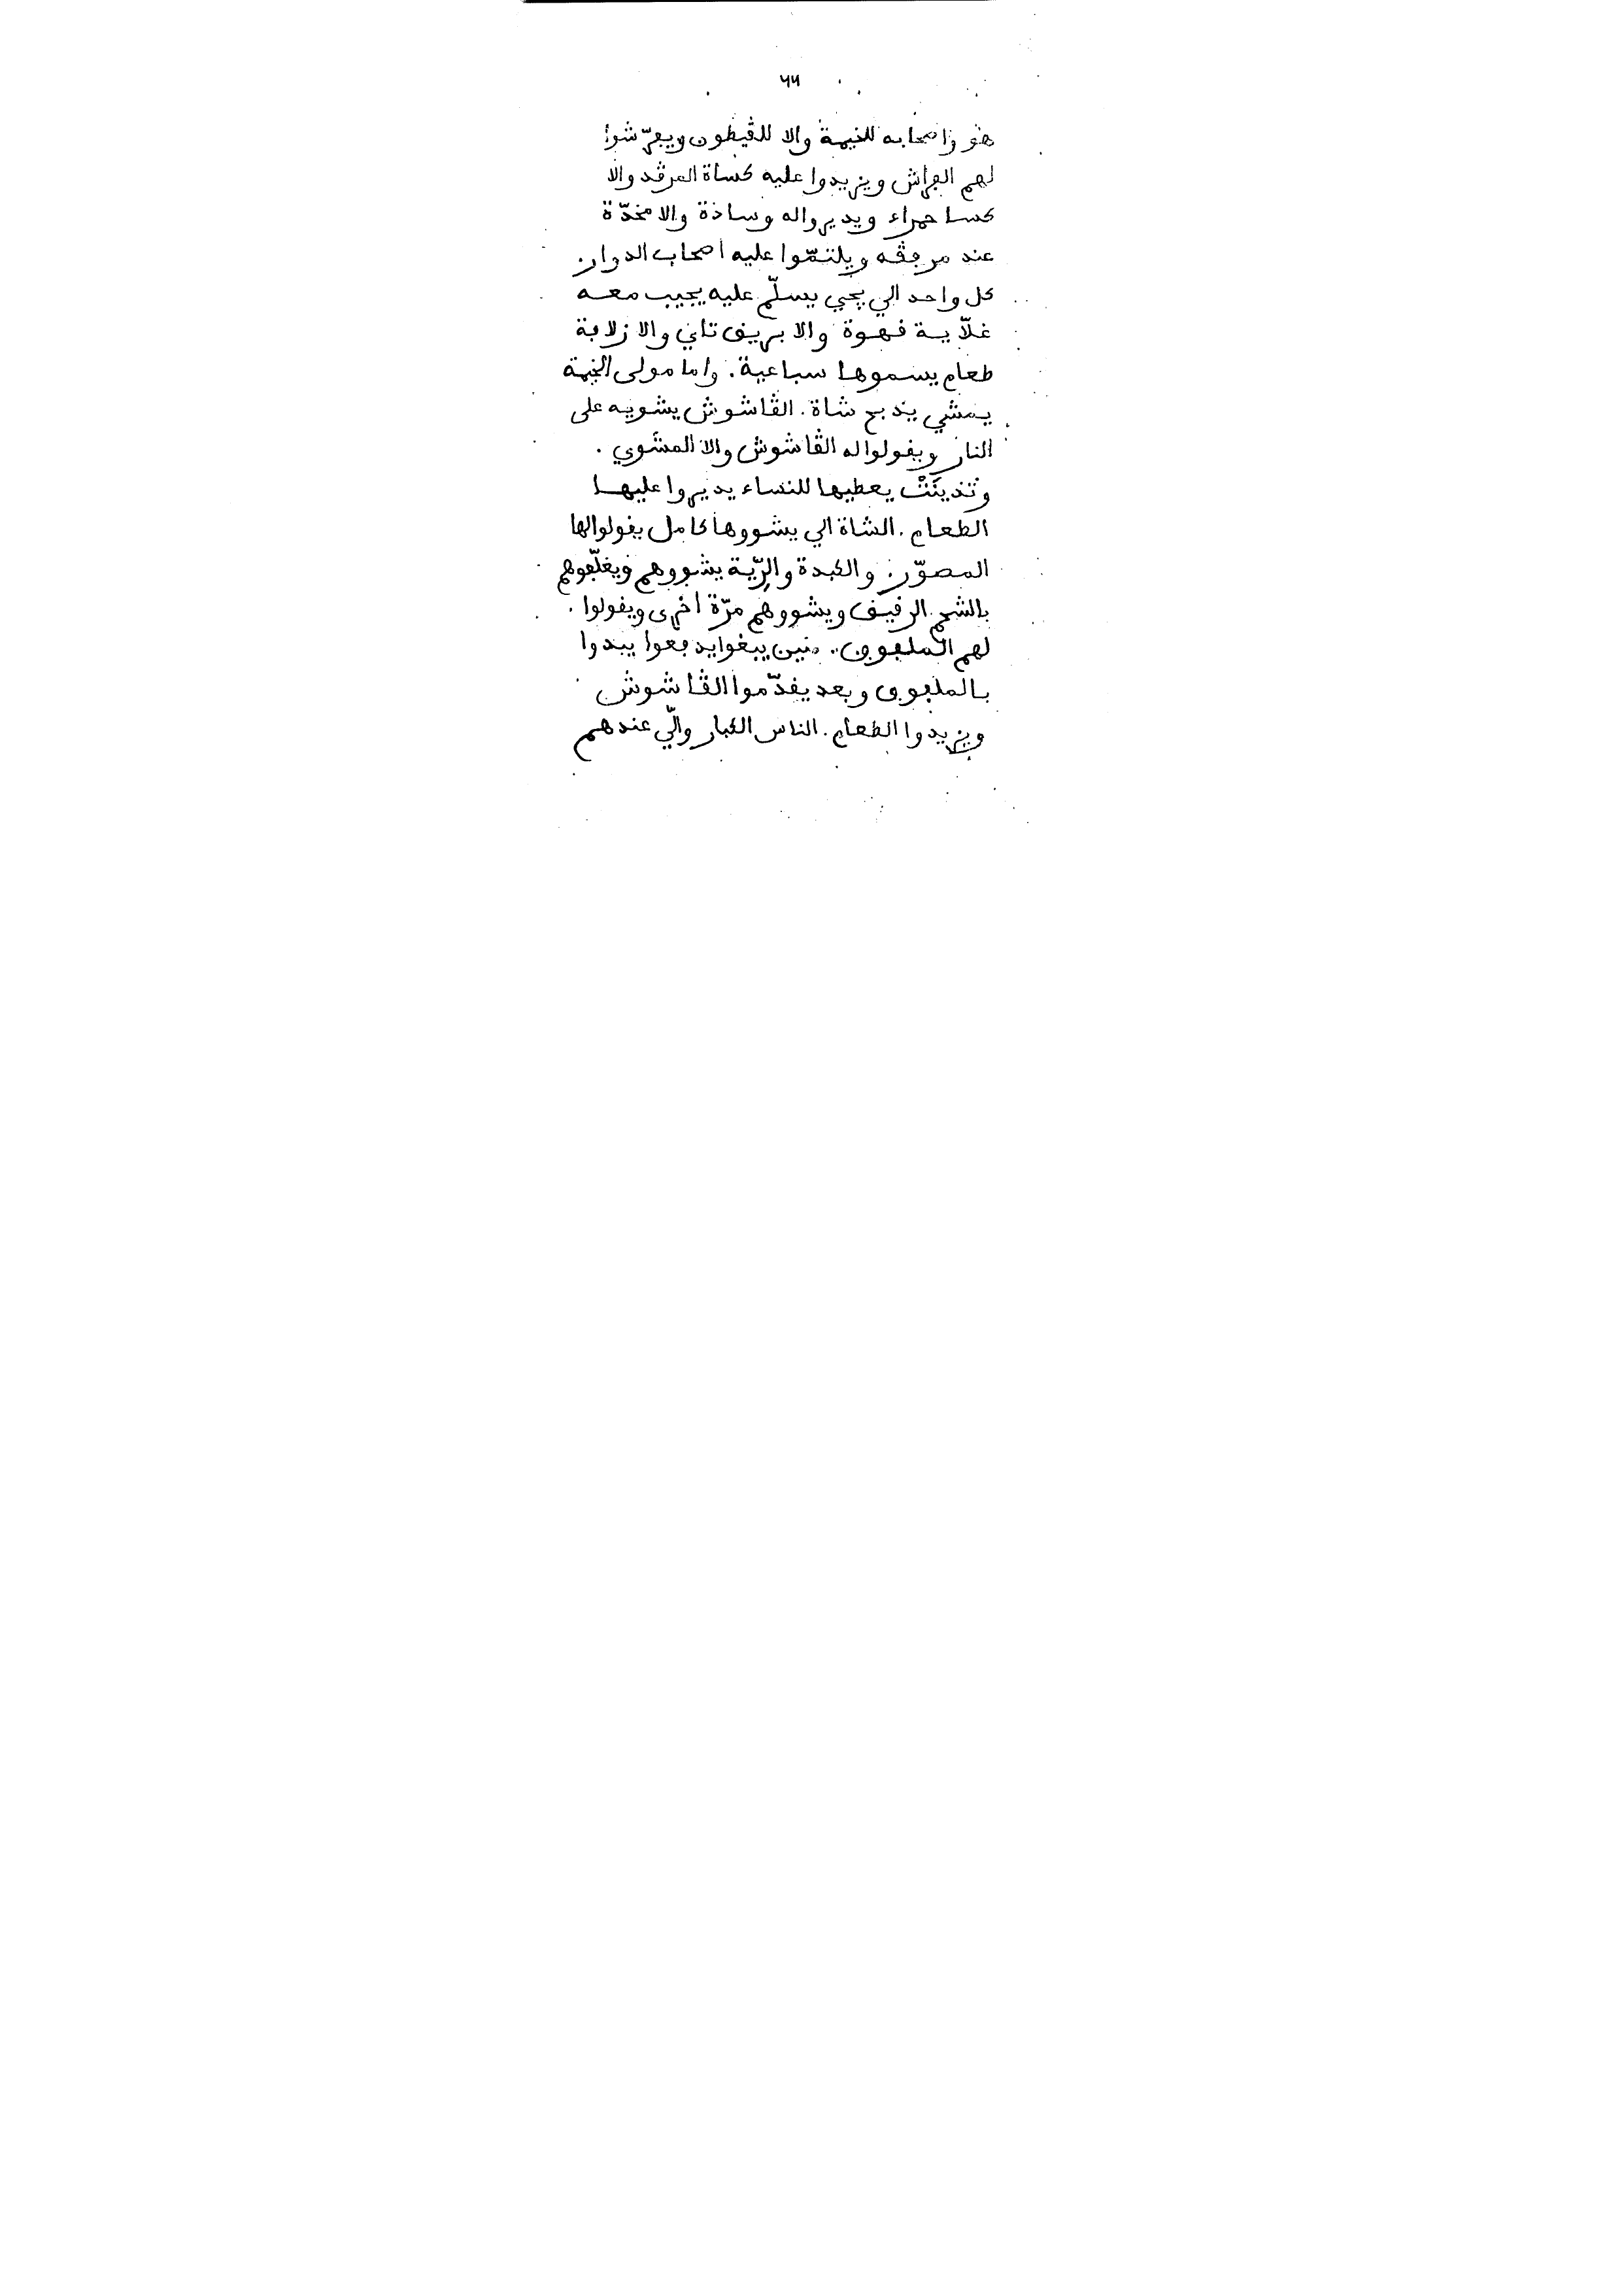 ٦٦
هو واصحابه للخيمة والا للڨيطون ويڢرّشوا
لهم الڢراش ويزيدوا عليه كساة المرڨد والا
كسا حمراء ويديرواله وسادة والا مخدّة
عند مرڢڨه ويلتمّوا عليه اصحاب الدوار
كل واحد الي يجي يسلّم عليه يجيب معه
غلّاية ڧهوة والا بريڧ تاي والا زلاڢة
طعام يسموها سباعية. واما مولى الخيمة
يمشي يذبح شاة. الڨاشوش يشويه على
النار ويڧولوا له الڨاشوش والا المشوي.
يعطيها للنساء يديروا عليها
الطعام. الشاة الي يشووها كامل يڧولوالها
المصوّر. والكبدة والرِّية يشووهم ويغلّڢوهم
بالشحم الرڧيڧ ويشووهم مرّة اخرى ويڧولوا
لهم الملڢوڢ. منين يبغوا يدڢعوا يبدوا
بالملڢوڢ وبعد يڧدّموا الڨاشوش
ويزيدوا الطعام. الناس الكبار والّي عندهم